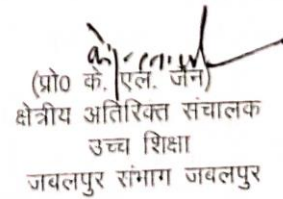 (प्रो0 के. एल. जैन)
क्षेत्रीय अतिरिक्त संचालक
उच्च शिक्षा
जबलपुर संभाग जबलपुर